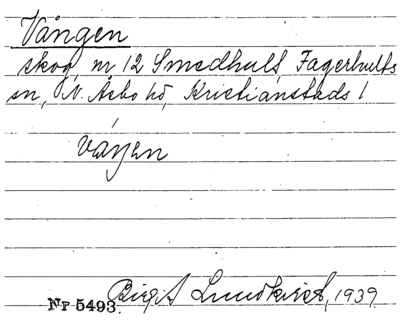 Vången
skog, nr 12 Smedhult, Fagerhults
sn, N. Åsbo hd, Kristianstads l
vaŋen
Nr 5493. Birgit Lundkvist, 1939.